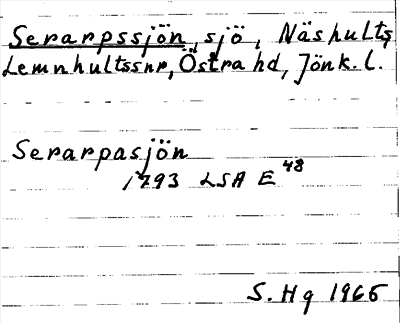 Serarpssjön, sjö, Näshults,
Lemnhultssnr, Östra hd, Jönk. l.
Serarpasjön
1793 LSA E 48
S. Hg 1965